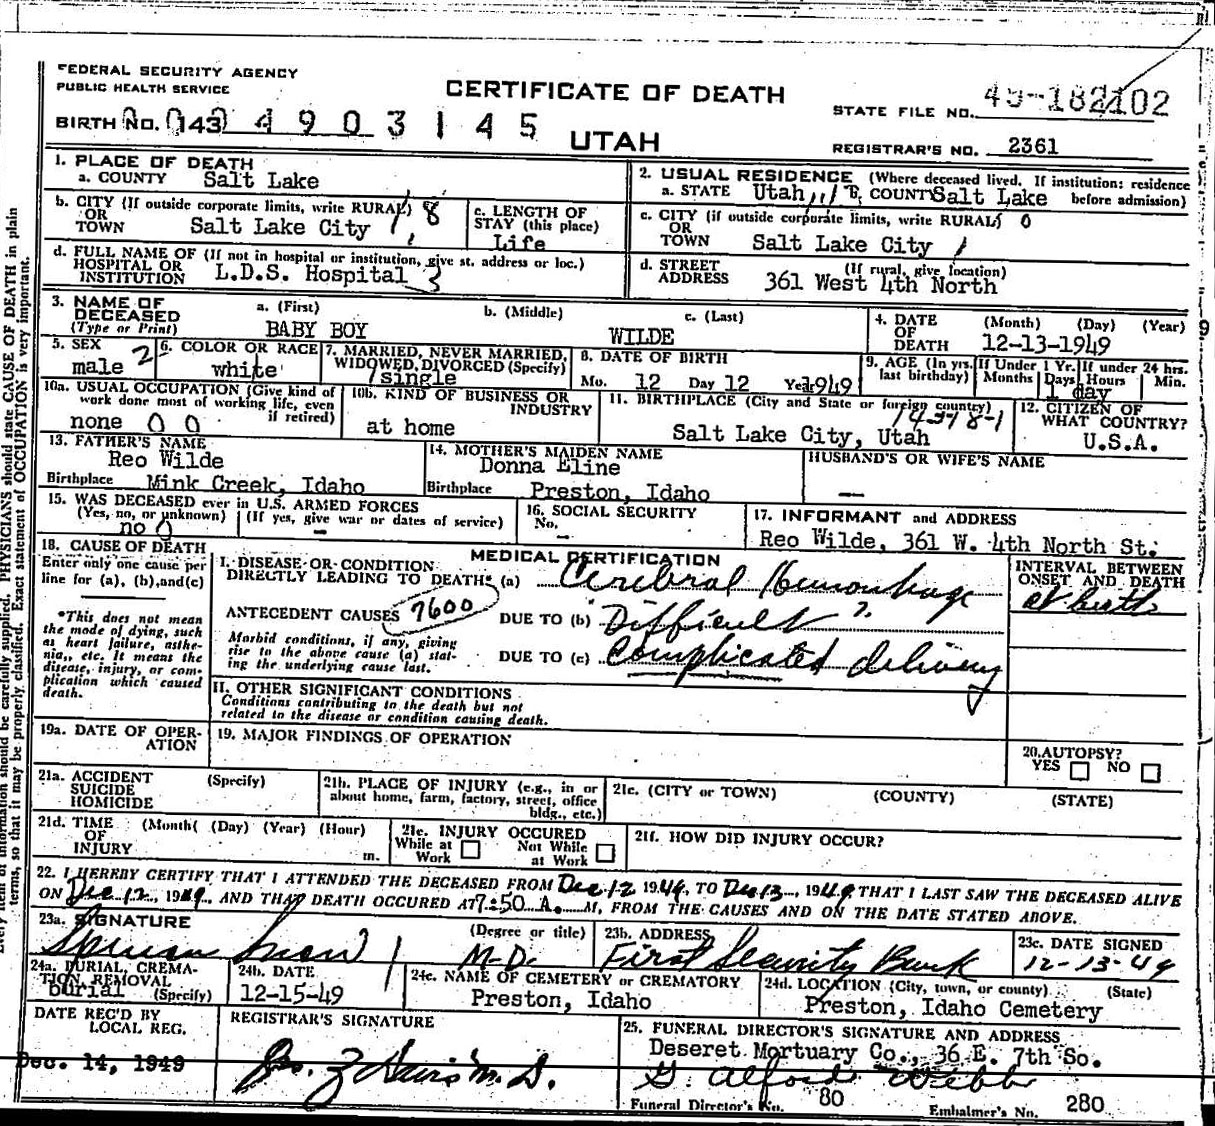 FEDERAL SECURITY AGENCY
PUBLIC HEALTH SERVICE
CERTIFICATE OF DEATH
STATE FILE NO. 49-182102
BIRTH NO. 143 4 9 0 3 1 4 5
UTAH
REGISTRAR'S NO. 2361
1. PLACE OF DEATH
a. COUNTY Salt Lake
2. USUAL RESIDENCE (Where deceased lived. If institution: residence before admission)
a. STATE Utah b. COUNTY Salt Lake
b. CITY (If outside corporate limits, write RURAL) OR TOWN Salt Lake City 18
c. LENGTH OF STAY (this place) Life
c. CITY (if outside corporate limits, write RURAL) OR TOWN Salt Lake City
d. FULL NAME OF (If not in hospital or institution, give st. address or loc.) HOSPITAL OR INSTITUTION L.D.S. Hospital 3
d. STREET ADDRESS (If rural, give location) 361 West 4th North
3. NAME OF DECEASED (Type or Print)
a. (First) BABY BOY
b. (Middle)
c. (Last) WILDE
4. DATE OF DEATH (Month) (Day) (Year) 12-13-1949
9
5. SEX male 2
6. COLOR OR RACE white
7. MARRIED, NEVER MARRIED, WIDOWED, DIVORCED (Specify) single
8. DATE OF BIRTH
Mo. 12 Day 12 Year 1949
9. AGE (In yrs. last birthday)
If Under 1 Yr. Months Days 1 day
If under 24 hrs. Hours Min.
10a. USUAL OCCUPATION (Give kind of work done most of working life, even if retired) none 0 0
10b. KIND OF BUSINESS OR INDUSTRY at home
11. BIRTHPLACE (City and State or foreign country) Salt Lake City, Utah
12. CITIZEN OF WHAT COUNTRY? U.S.A.
13. FATHER'S NAME Reo Wilde
Birthplace Mink Creek, Idaho
14. MOTHER'S MAIDEN NAME Donna Eline
Birthplace Preston, Idaho
HUSBAND'S OR WIFE'S NAME —
15. WAS DECEASED ever in U.S. ARMED FORCES
(Yes, no, or unknown) no 0
(If yes, give war or dates of service) -
16. SOCIAL SECURITY No. -
17. INFORMANT and ADDRESS
Reo Wilde, 361 W. 4th North St.
18. CAUSE OF DEATH
Enter only one cause per line for (a), (b), and (c)
*This does not mean the mode of dying, such as heart failure, asthenia, etc. It means the disease, injury, or complication which caused death.
MEDICAL CERTIFICATION
I. DISEASE OR CONDITION DIRECTLY LEADING TO DEATH* (a) Cerebral Hemorrhage
INTERVAL BETWEEN ONSET AND DEATH at birth
ANTECEDENT CAUSES 7600
DUE TO (b) Difficult ?
Morbid conditions, if any, giving rise to the above cause (a) stating the underlying cause last.
DUE TO (c) Complicated delivery
II. OTHER SIGNIFICANT CONDITIONS
Conditions contributing to the death but not related to the disease or condition causing death.
19a. DATE OF OPERATION
19. MAJOR FINDINGS OF OPERATION
20. AUTOPSY? YES NO
21a. ACCIDENT SUICIDE HOMICIDE (Specify)
21b. PLACE OF INJURY (e.g., in or about home, farm, factory, street, office bldg., etc.)
21c. (CITY or TOWN) (COUNTY) (STATE)
21d. TIME OF INJURY (Month( (Day) (Year) (Hour) m.
21e. INJURY OCCURED While at Work Not While at Work
21f. HOW DID INJURY OCCUR?
22. I HEREBY CERTIFY THAT I ATTENDED THE DECEASED FROM Dec 12 1949, TO Dec 13, 1949 THAT I LAST SAW THE DECEASED ALIVE
ON Dec 12, 1949, AND THAT DEATH OCCURED AT 7:50 A. M, FROM THE CAUSES AND ON THE DATE STATED ABOVE.
23a. SIGNATURE Snow
(Degree or title) M.D.
23b. ADDRESS First Security Bank
23c. DATE SIGNED 12-13-49
24a. BURIAL, CREMATION, REMOVAL (Specify) burial
24b. DATE 12-15-49
24c. NAME OF CEMETERY or CREMATORY Preston, Idaho
24d. LOCATION (City, town, or county) (State)
Preston, Idaho Cemetery
DATE REC'D BY LOCAL REG. Dec. 14, 1949
REGISTRAR'S SIGNATURE
M.D.
25. FUNERAL DIRECTOR'S SIGNATURE AND ADDRESS
Deseret Mortuary Co., 36 E. 7th So.
G. Alford Webb
Funeral Director's No. 80
Embalmer's No. 280
information should be carefully supplied. PHYSICIANS should state CAUSE OF DEATH in plain
terms, so that it may be properly classified. Exact statement of OCCUPATION is very important.